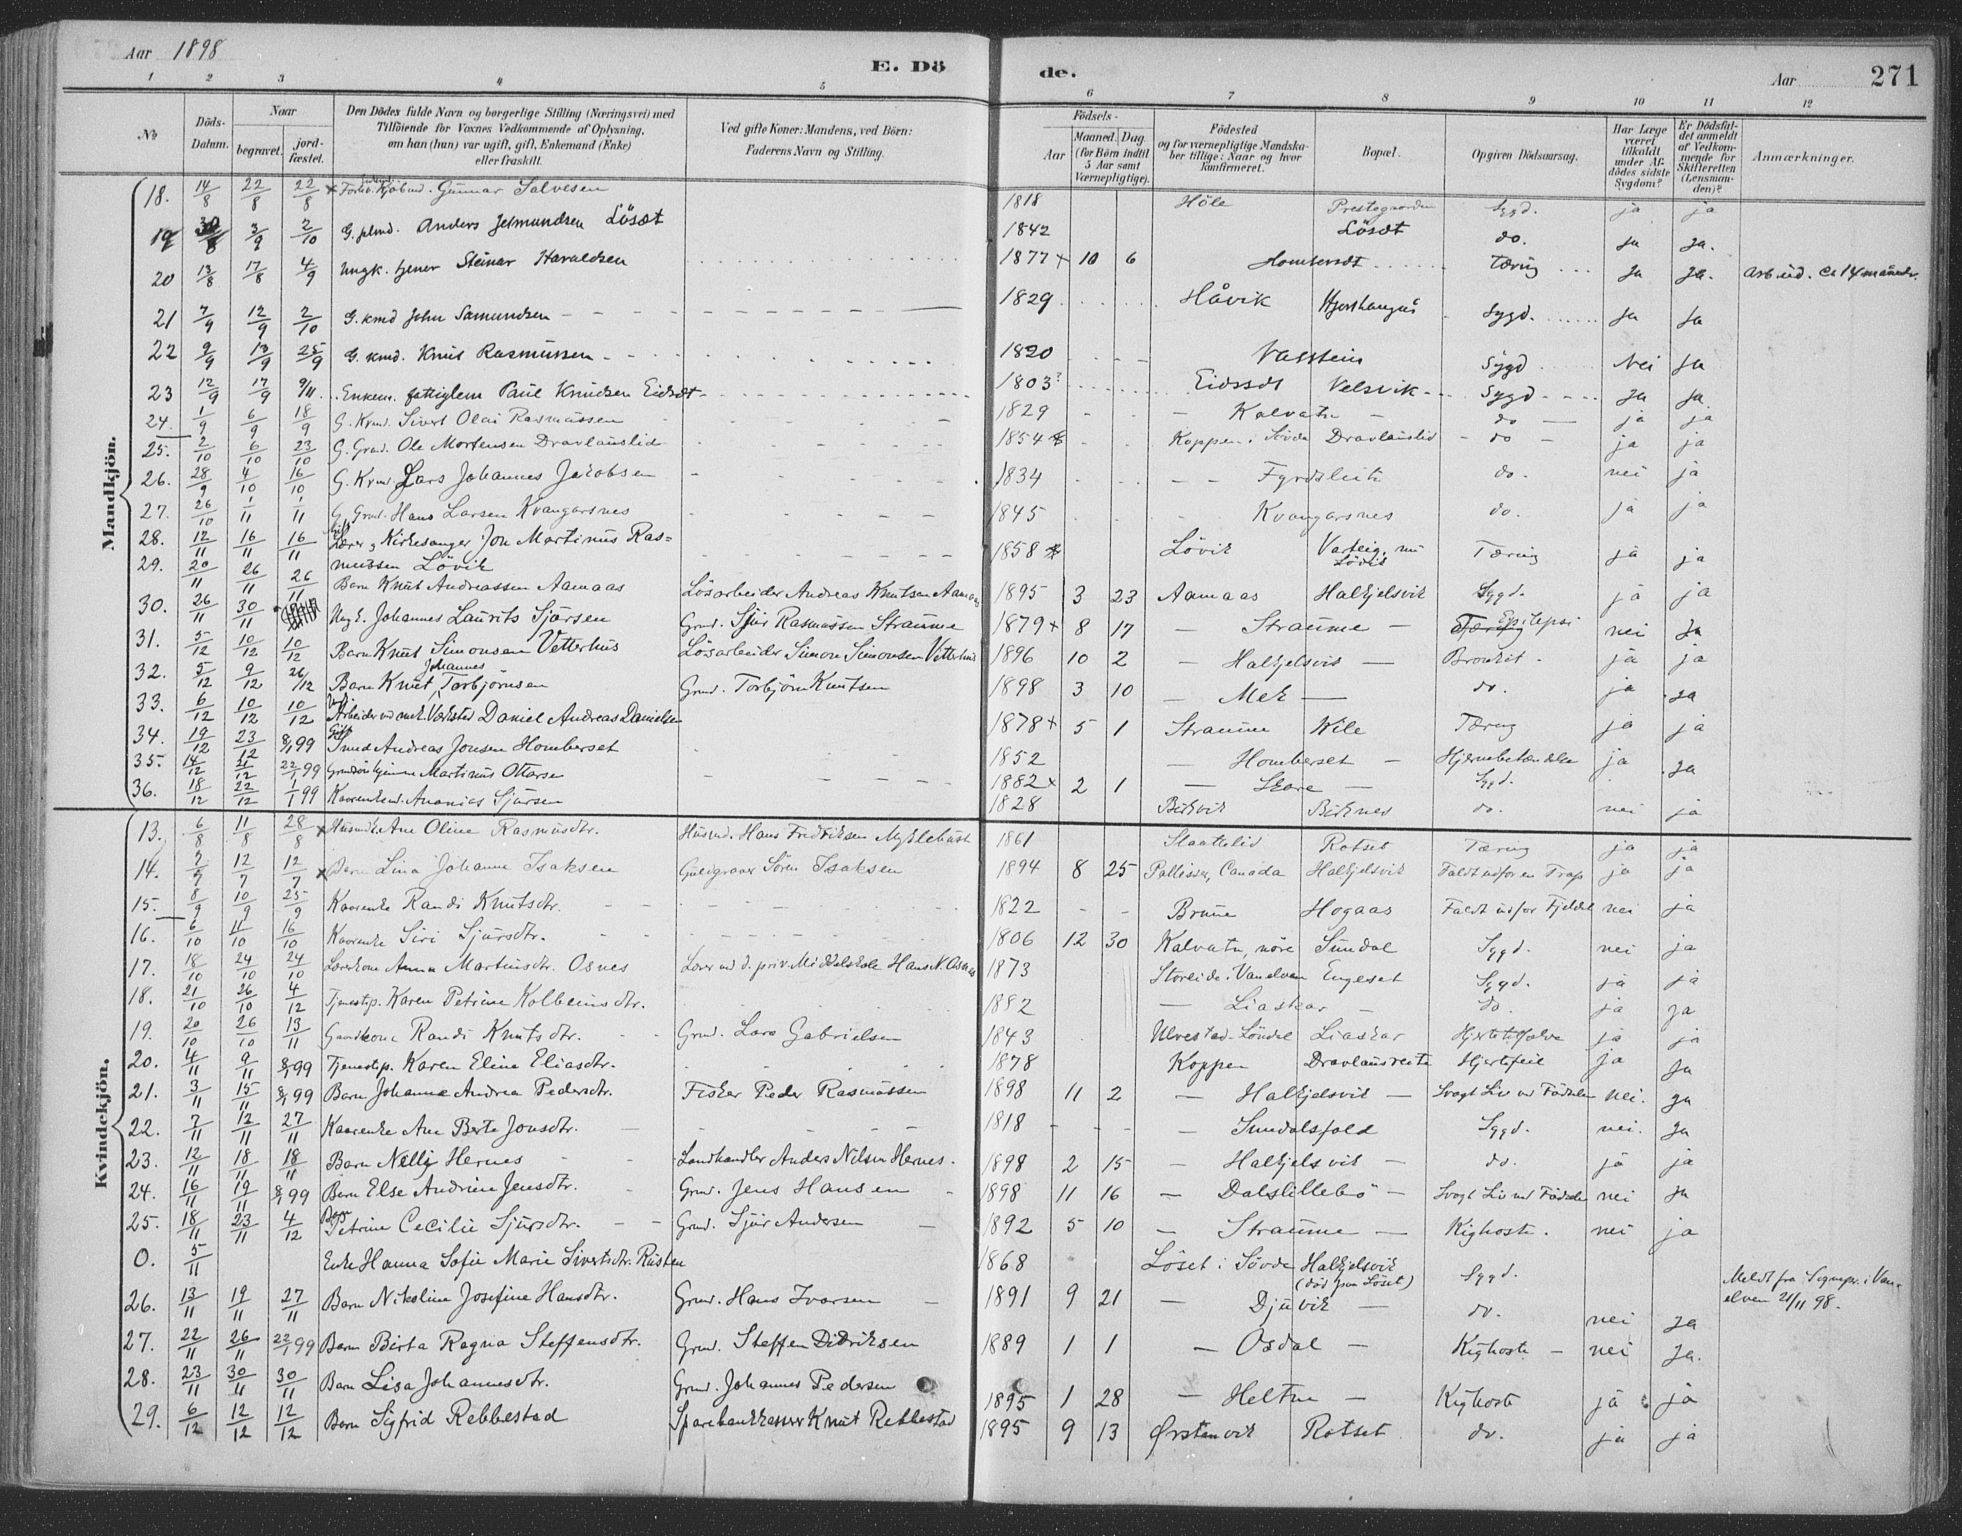 Aar 1898
E. Dö de.
Aar 271
1 2 3 4 5 6 7 8 9 10 11 12
No
Döds-Datum.
Naar
begravet.
jord-fæstet.
Den Dödes fulde Navn og borgerlige Stilling (Næringsvei) med
Tilföiende for Voxnes Vedkommende af Oplysning,
om han (hun) var ugift, gift, Enkemand (Enke)
eller fraskilt.
Ved gifte Koner: Mandens, ved Börn:
Faderens Navn og Stilling.
Födsels-
Aar
Maaned. Dag.
(for Börn indtil
5 Aar samt
Værnepligtige).
Födested
og for værnepligtige Mandska-
ber tillige: Naar og hvor
konfirmeret.
Bopæl.
Opgiven Dödsaarsag.
Har Læge
været
tilkaldt
under Af-
dödes sidste
Sygdom?
Er Dödsfal-
det anmeldt
af Vedkom-
mende for
Skifteretten
(Lensman-
den)?
Anmærkninger.
Mandkjön.
18. 14/8 22/8 22/8 Gunnar Salvesen 1818 Höle Prestegaarden Sygd. ja ja
19 30/8 3/9 2/10 Anders Jetmundsen Lösæt 1842 Lösæt do. Ja Ja.
20 13/8 17/8 4/9 Ungk. tjener Steinar Haraldsen 1877 + 10 6 Homberset Tæring Ja Ja. Arb.ud. ca 14 måneder.
21 7/9 12/9 2/10 G. kmd John Samundsen 1829 Håvik Sygd. Ja Ja
22 9/9 13/9 25/9 G. kmd. Knut Rasmussen 1820 Valstein Sygd Nei Ja
23 12/9 17/9 9/11. Enkem. fattiglem Paul Knudsen Eidsdt 1803? Eidssdt Velsvik Sygd Ja Ja
24. 1/9 6/9 18/9 G. Krmd. Sivert Olai Rasmussen 1829 Kalvatn do ja ja
25. 2/10 6/10 23/10 G. Grmd. Ole Mortensen Dravlauslid 1854 Koppen i Søvde Dravlauslid do ja ja
26. 28/9 4/10 16/10 G. Krmd. Lars Johannes Jakobsen 1834 Fyrdsleite do. nei ja
27. 26/10 1/11 1/11 G. Grmd. Hans Larsen Kvangarsnes 1845 Kvangarsnes do. ja ja
28. 12/11 16/11 16/11 Gift Lærer og Kirkesanger Jon Martinus Ras=
mussen Lövik 1858 Lövik Varteig, nu Lövik Tæring ja ja
29. 20/11 26/11 26/11 Barn Knut Andreassen Aamaas Lösarbeider Andreas Knutsen Aamaas 1895 3 23 Aamaas Halkjelsvik Sygd. ja ja
30. 26/11 30/11 Ungk. Johannes Laurits Sjursen Grmd. Sjur Rasmussen Straume 1879 + 8 17 Straume Epilepsi nei Ja
31. 5/12 10/12 10/12 Barn Knut Simonsen Vetterhus Lösarbeider Simon Simonsen Vetterhus 1896 10 2 Halkjelsvik Bronkit. ja ja
32. 5/12 9/12 26/12 Barn Knut Johannes Torbjörnsen Grmd. Torbjörn Knutsen 1898 3 10 Mek do. ja Ja
33. 6/12 10/12 10/12 Arbeider ved mek. Værksted Daniel Andreas Danielsen 1878 + 5 1 Straume Wile Tæring ja ja
34. 19/12 23/12 8/1 99 Gift Smed Andreas Jonsen Homberset 1852 Homberset Hjernebetændelse ja Ja
35. 14/12 21/12 22/1 99 Martinus Ottarsen 1882 + 2 1 Skare Sygd.
36. 18/12 22/12 1/1 99 Kaarenkem. Ananias Sjursen 1828 Birkvik Birknes do. nei ja
Kvindekjön.
13. 6/8 11/8 28/8 Ane Oline Rasmusdtr. Husmd. Hans Fredriksen Myklebust 1861 Staatelid Rotset Tæring ja ja
14. 7/7 12/7 12/7 Barn Lina Johanne Isaksen Guldgraver Sören Isaksen 1894 8 25 Pallisser, Canada Halkjelsvik Faldt udfor en Trap ja ja
15. 8/9 10/9 25/9 Kaarenke Randi Knutsdtr. 1822 Brune Hogaas Faldt udfor Fjeldet nei ja
16. 6/10 11/10 16/10 Kaarenke Siri Sjursdtr. 1806 12 30 Kalvatn, nöre Sundal Sygd. nei ja
17. 18/10 24/10 24/10 Lærerkone Anna Martinsdtr. Osnes Lærer ved d. priv. Middelskole Hans N. Osnes 1873 Storeide i Vanelven Engeset Sygd. ja ja
18. 21/10 26/10 4/12 Tjenestep. Karen Petrine Kolbeinsdtr. 1882 Liaskar do. ja ja
19. 20/10 26/10 13/11 Gaardkone Randi Knutsdtr. Grmd. Lars Gabrielsen 1843 Ulvestad Löndal Liaskar ja ja
20. 4/11 9/11 8/1 99 Tjenestep. Karen Eline Eliasdtr. 1878 Koppen Dravlausreite Hjertefeil ja Ja
21. 3/11 15/11 8/1 99 Barn Johanne Andrea Pedersdtr. Fisker Peder Rasmussen 1898 11 2 Halkjelsvik Svagt Liv ved Födselen nei. Ja
22. 7/11 12/11 27/11 Kaarenke Ane Berte Jonsdtr. 1818 Sundalsfold Sygd. nei. Ja
23. 12/11 18/11 18/11 Barn Nelly Hernes Landhandler Anders Nilsen Hernes. 1898 2 15 Halkjelsvik do. ja ja
24. 16/11 19/11 8/1 99 Barn Else Andrine Jensdtr. Grmd. Jens Hansen 1898 11 16 Dalslillebö Svagt Liv ved Födselen nei Ja
25. 18/11 23/11 4/12 Barn Petrine Cecilie Sjursdtr. Grmd. Sjur Andersen 1892 5 10 Straume Kighoste. nei ja
0. 5/11 Enke Hanna Sofie Marie Sivertsdtr. Rusten 1868 Löset i Sövde Halkjelsvik (död paa Löset) Sygd. Meldt fra Sognepr. i Van-
elven 21/11 98.
26. 13/11 19/11 27/11 Barn Nikoline Josefine Hansdtr. Grmd. Hans Ivarsen 1891 9 21 Djuvik do. nei Ja
27. 22/11 26/11 22/1 99 Barn Birta Ragna Steffensdtr. Grmd. Steffen Didriksen 1889 1 1 Osdal Kighoste nei Ja.
28. 23/11 30/11 30/11 Barn Lisa Johannesdtr. Grmd. Johannes Pedersen 1895 1 28 Heltne Kighoste ja ja
29. 6/12 12/12 12/12 Barn Sigfrid Rebbestad Sparebankkasserer Knut Rebbestad 1895 9 13 Ørstenvik Rotset do. ja ja